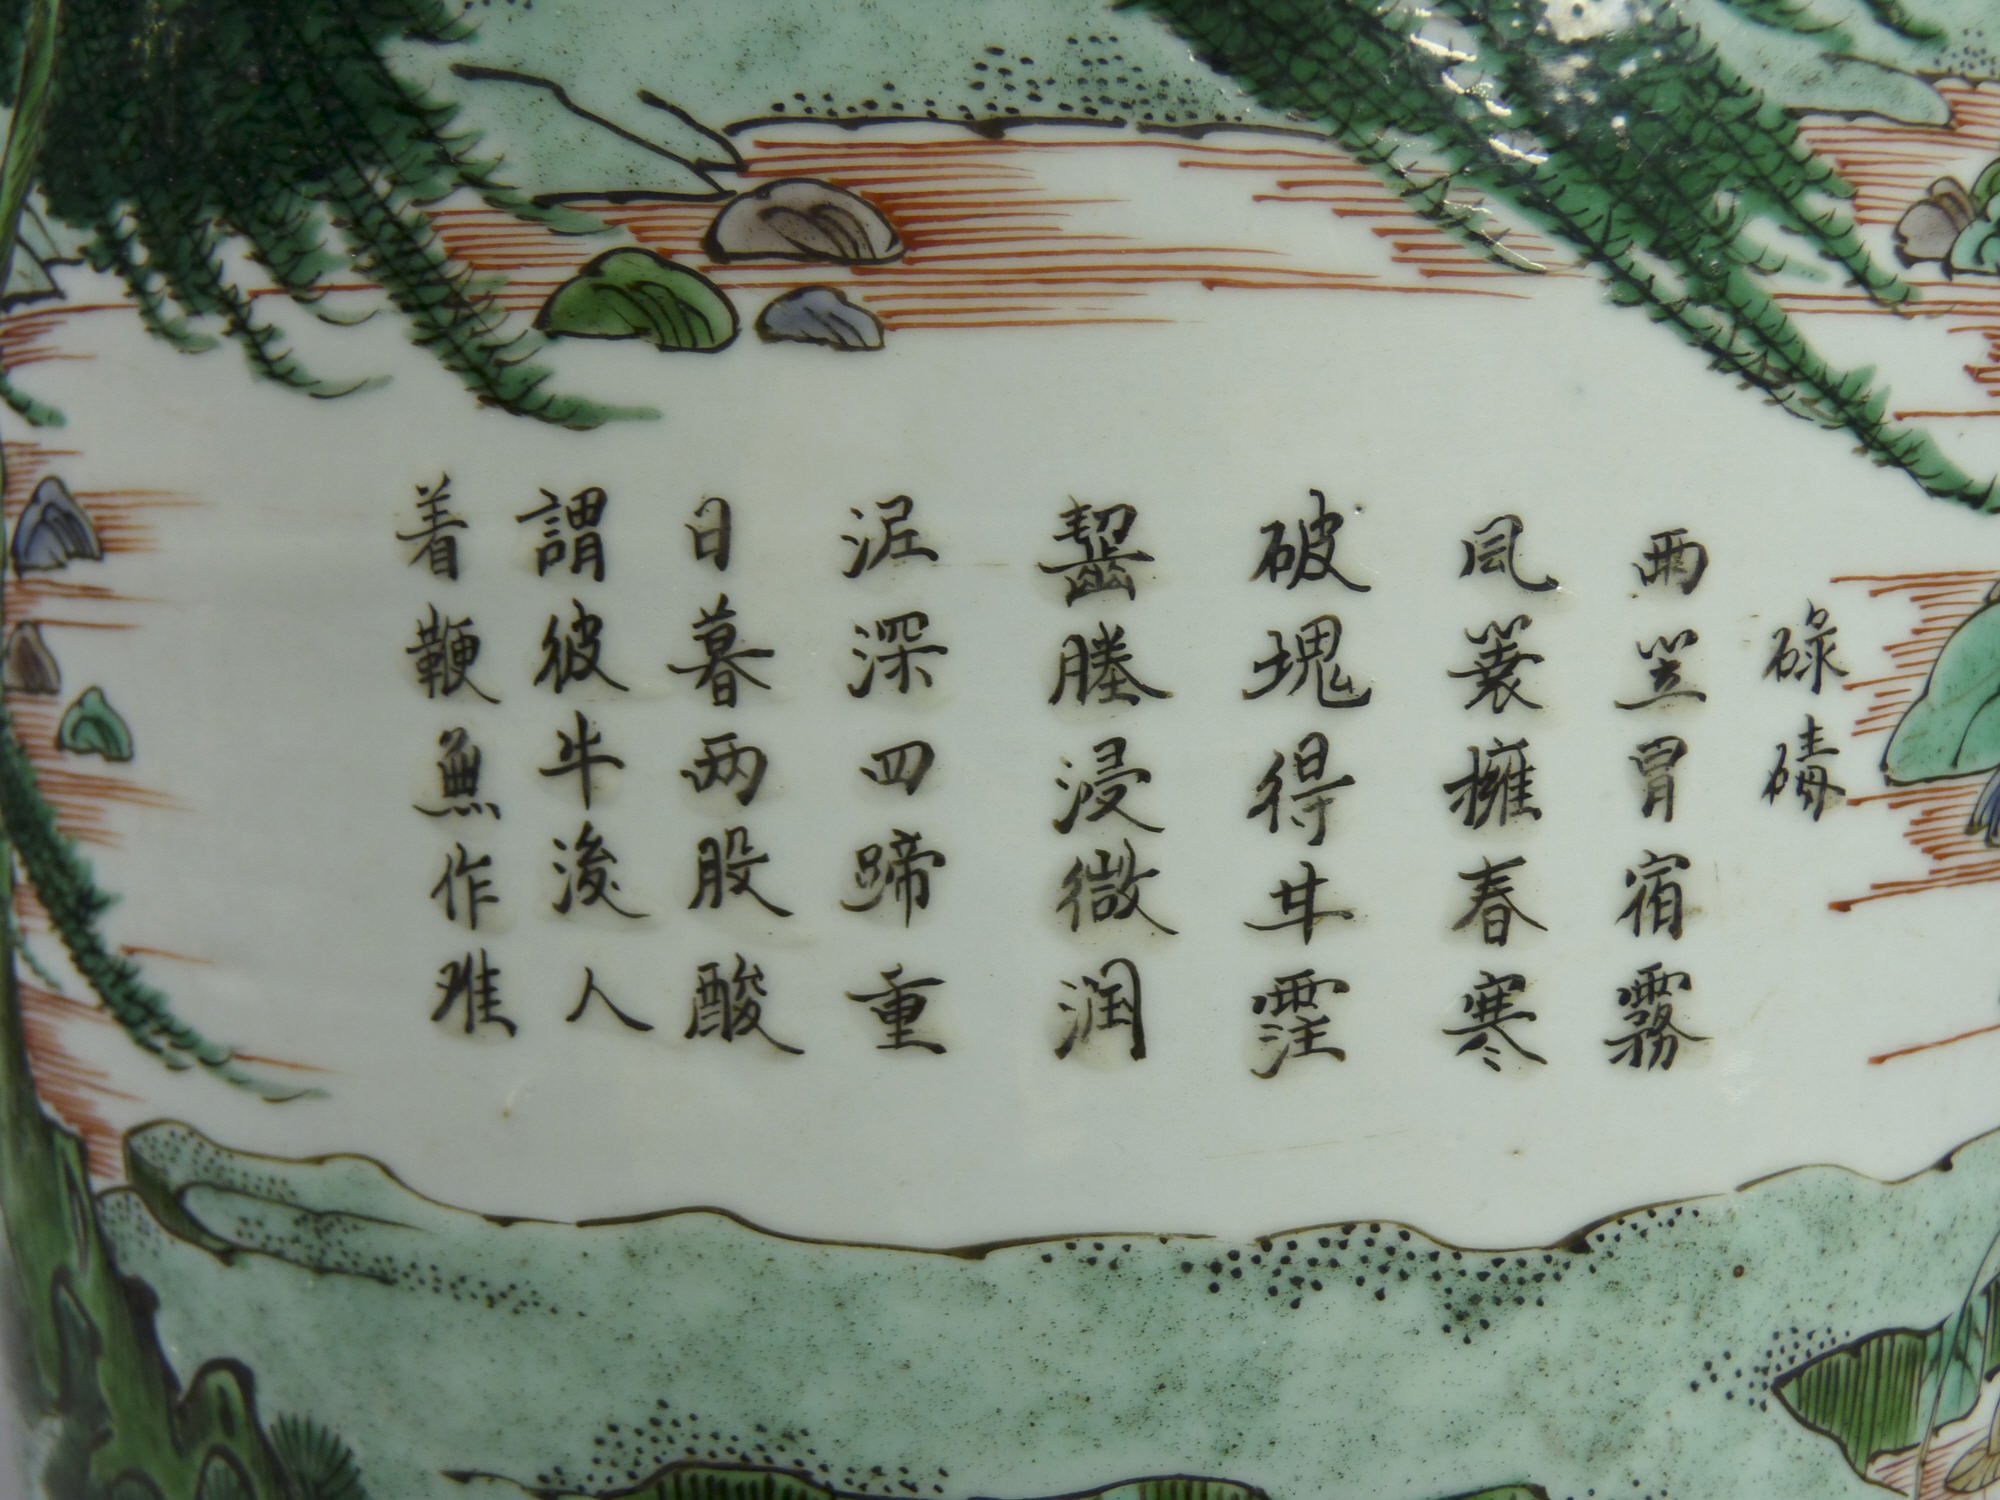 碌碡
雨笠冒宿霧
風蓑擁春寒
破塊得甘霔
齧塍浸微润
泥深四蹄重
日暮两股酸
謂彼牛後人
着鞭無作难